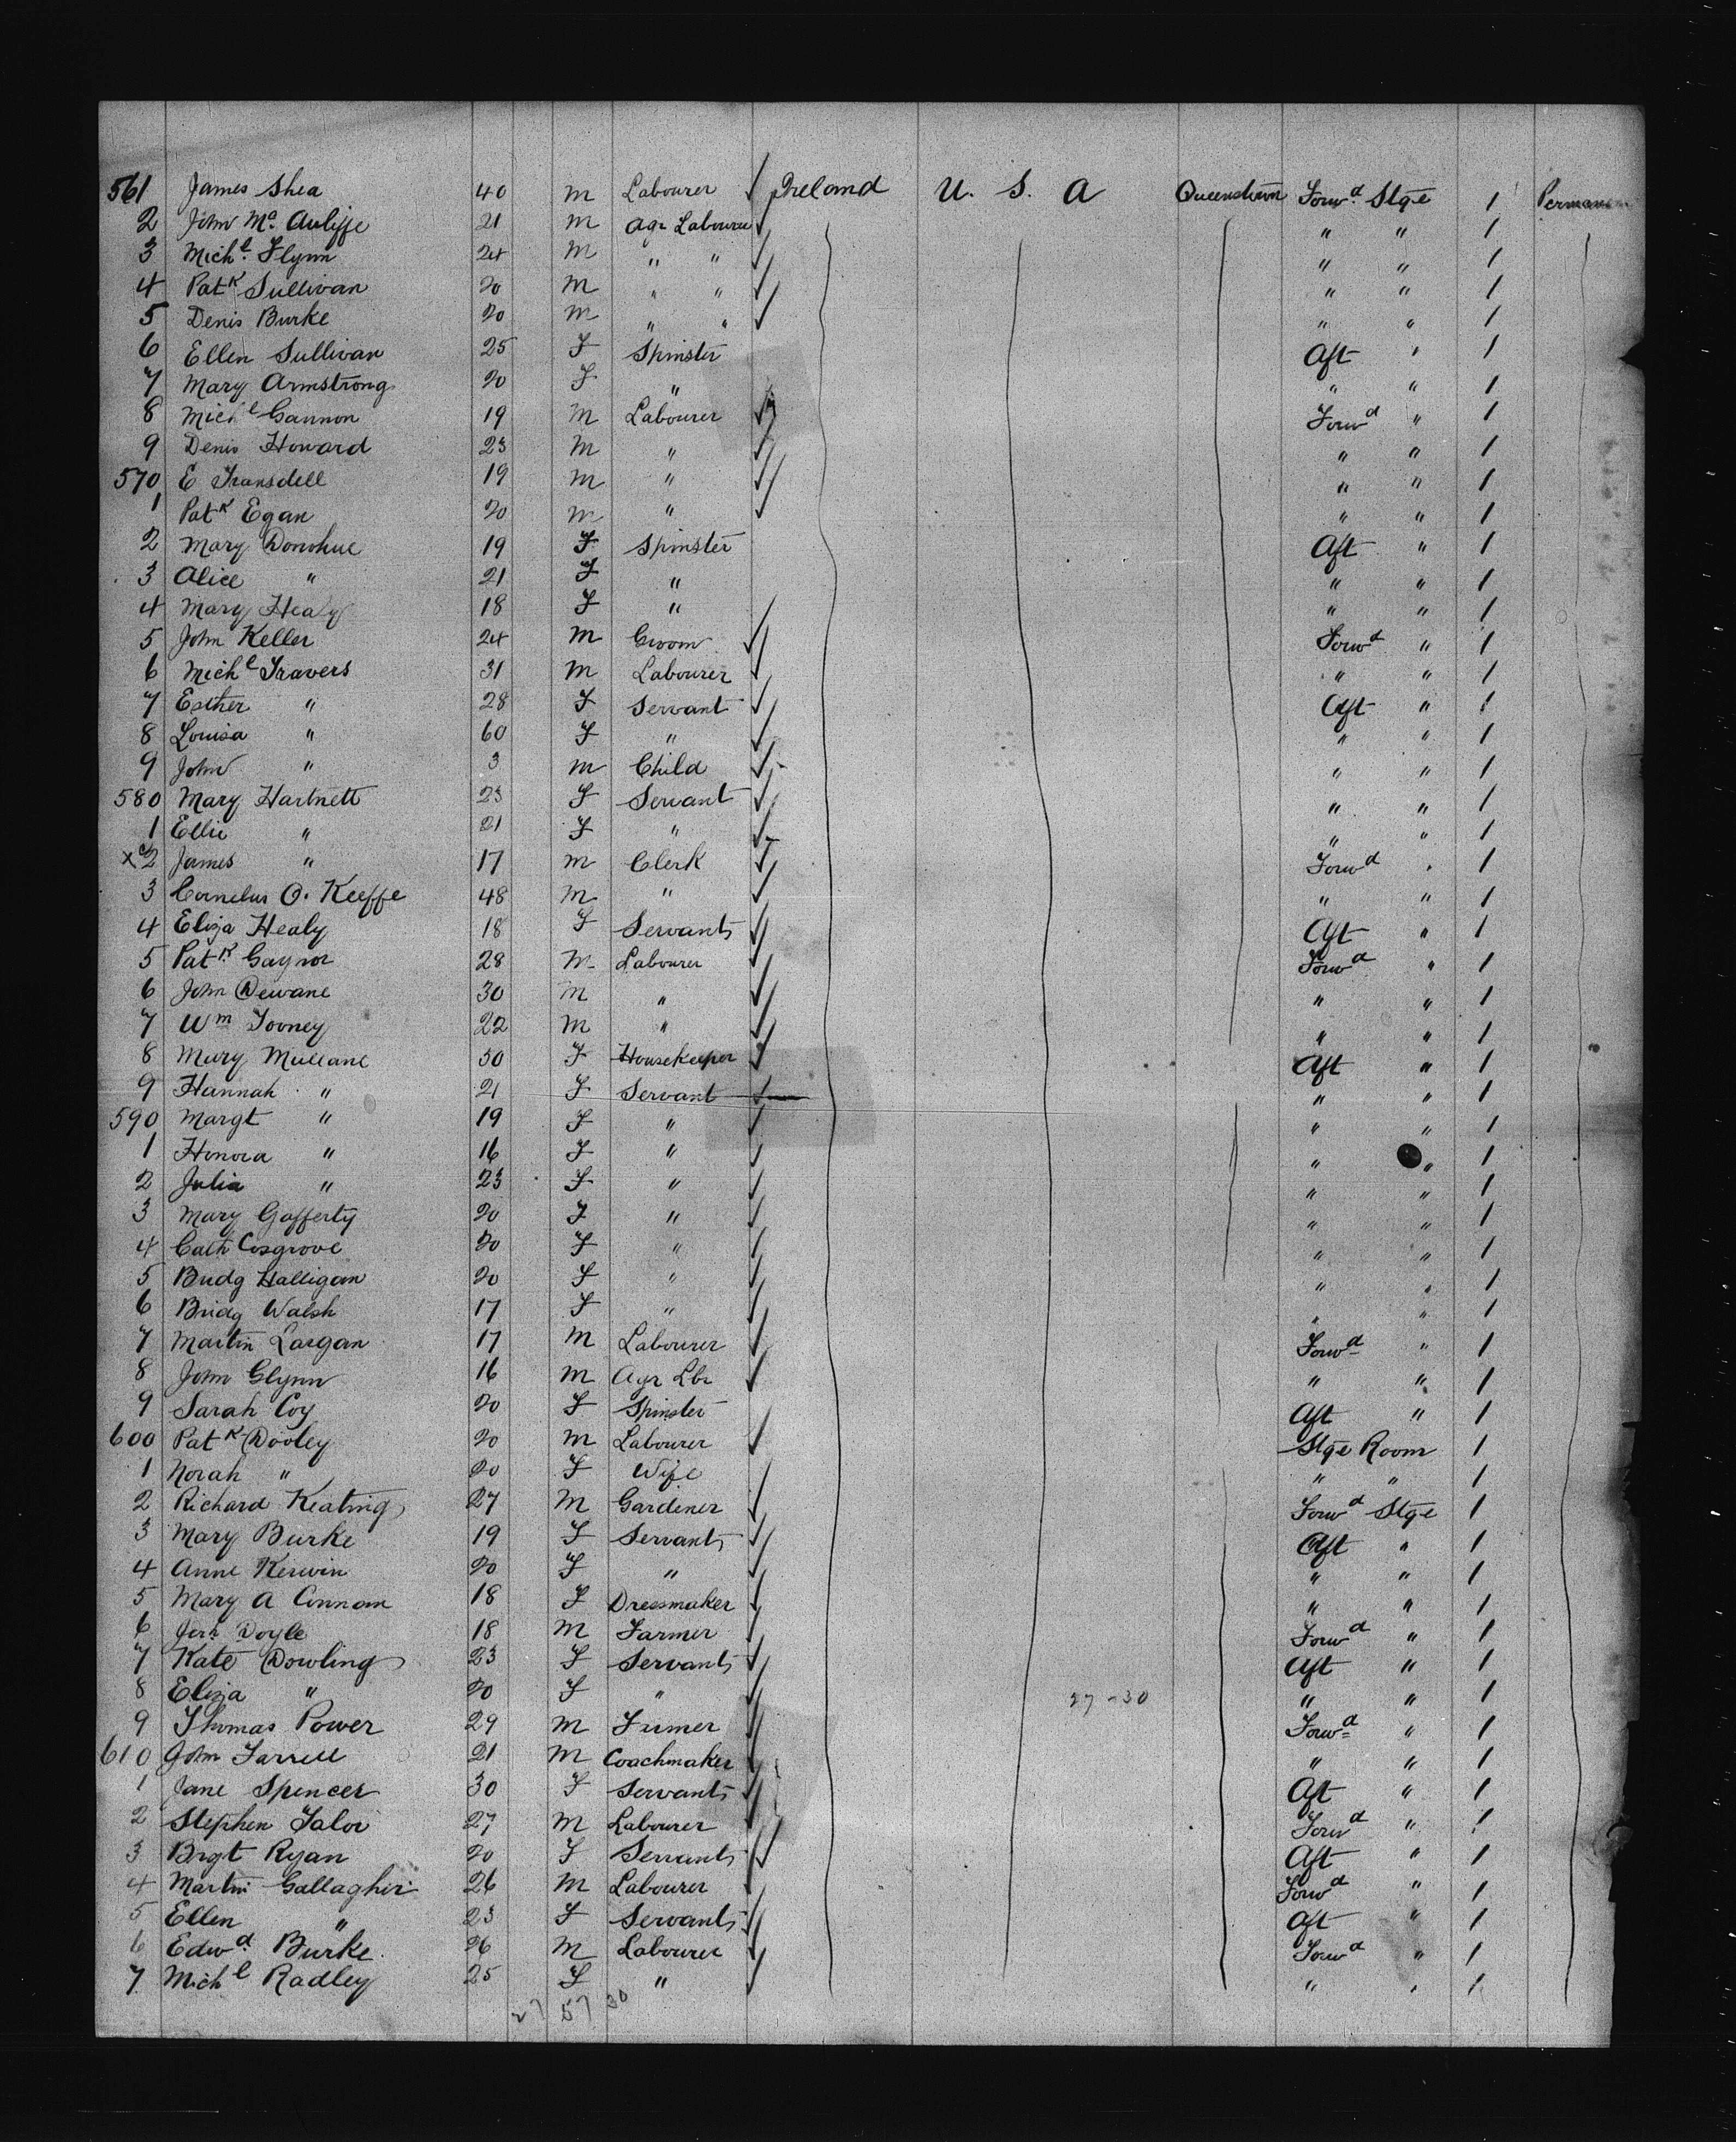 561 James Shea 40 m Labourer Ireland U. S. A Queenstown Forwd Stge 1 Permanen
2 John Mc Auliffe 21 m Agr Labourer " " 1
3 Michl Flynn 24 m " " " " 1
4 Patk Sullivan 20 m " " " " 1
5 Denis Burke 20 m " " " " 1
6 Ellen Sullivan 25 F Spinster Aft " 1
7 Mary Armstrong 20 F " " " 1
8 Michl Gannon 19 m Labourer Forwd " 1
9 Denis Howard 23 m " " " 1
570 E Transdell 19 m " " " 1
1 Patk Egan 20 m " " " 1
2 Mary Donohue 19 F Spinster Aft " 1
3 Alice " 21 F " " " 1
4 Mary Healy 18 F " " " 1
5 John Keller 24 m Groom Forwd " 1
6 Michl Travers 31 m Labourer " " 1
7 Esther " 28 F Servant Aft " 1
8 Louisa " 60 F " " " 1
9 John " 3 m Child " " 1
580 Mary Hartnett 23 F Servant " " 1
1 Ellie " 21 F " " " 1
x 2 James " 17 m Clerk Forwd " 1
3 Cornelus O. Keeffe 48 m " " " 1
4 Eliza Healy 18 F Servant Aft " 1
5 Patk Gaynor 28 m Labourer Forwd " 1
6 John Dewane 30 m " " " 1
7 Wm Tooney 22 m " " " 1
8 Mary Mullane 50 F Housekeeper Aft " 1
9 Hannah " 21 F Servant " " 1
590 Margt " 19 F " " " 1
1 Honora " 16 F " " " 1
2 Julia " 23 F " " " 1
3 Mary Gafferty 20 F " " " 1
4 Cath Cosgrove 20 F " " " 1
5 Bridg Halligan 20 F " " " 1
6 Bridg Walsh 17 F " " " 1
7 Martin Largan 17 m Labourer Forwd " 1
8 John Glynn 16 m Agr Lbr " " 1
9 Sarah Coy 20 F Spinster Aft " 1
600 Patk Dooley 20 m Labourer Stge Room 1
1 Norah " 20 F Wife " " 1
2 Richard Keating 27 m Gardener Forwd Stge 1
3 Mary Burke 19 F Servant Aft " 1
4 Anne Kerwin 20 F " " " 1
5 Mary A 18 F Dressmaker " " 1
6 Doyle 18 m Farmer Forwd " 1
7 Kate Dowling 23 F Servant Aft " 1
8 Eliza " 20 F " 27-30 " " 1
9 Thomas Power 29 m Forwd " 1
610 John Farrell 21 m Coachmaker " " 1
1 Jane Spencer 30 F Servant Aft " 1
2 Stephen Lalor 27 m Labourer Forwd " 1
3 Brgt Ryan 20 F Servant Aft " 1
4 Martin Gallagher 26 m Labourer Forwd " 1
5 Ellen " 23 F Servant Aft " 1
6 Edwd Burke 26 m Labourer Forwd " 1
7 Michl Radley 25 F " " " 1
27 57 30